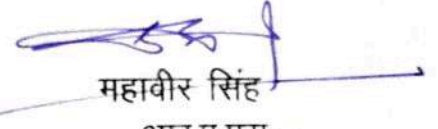 महावीर सिंह